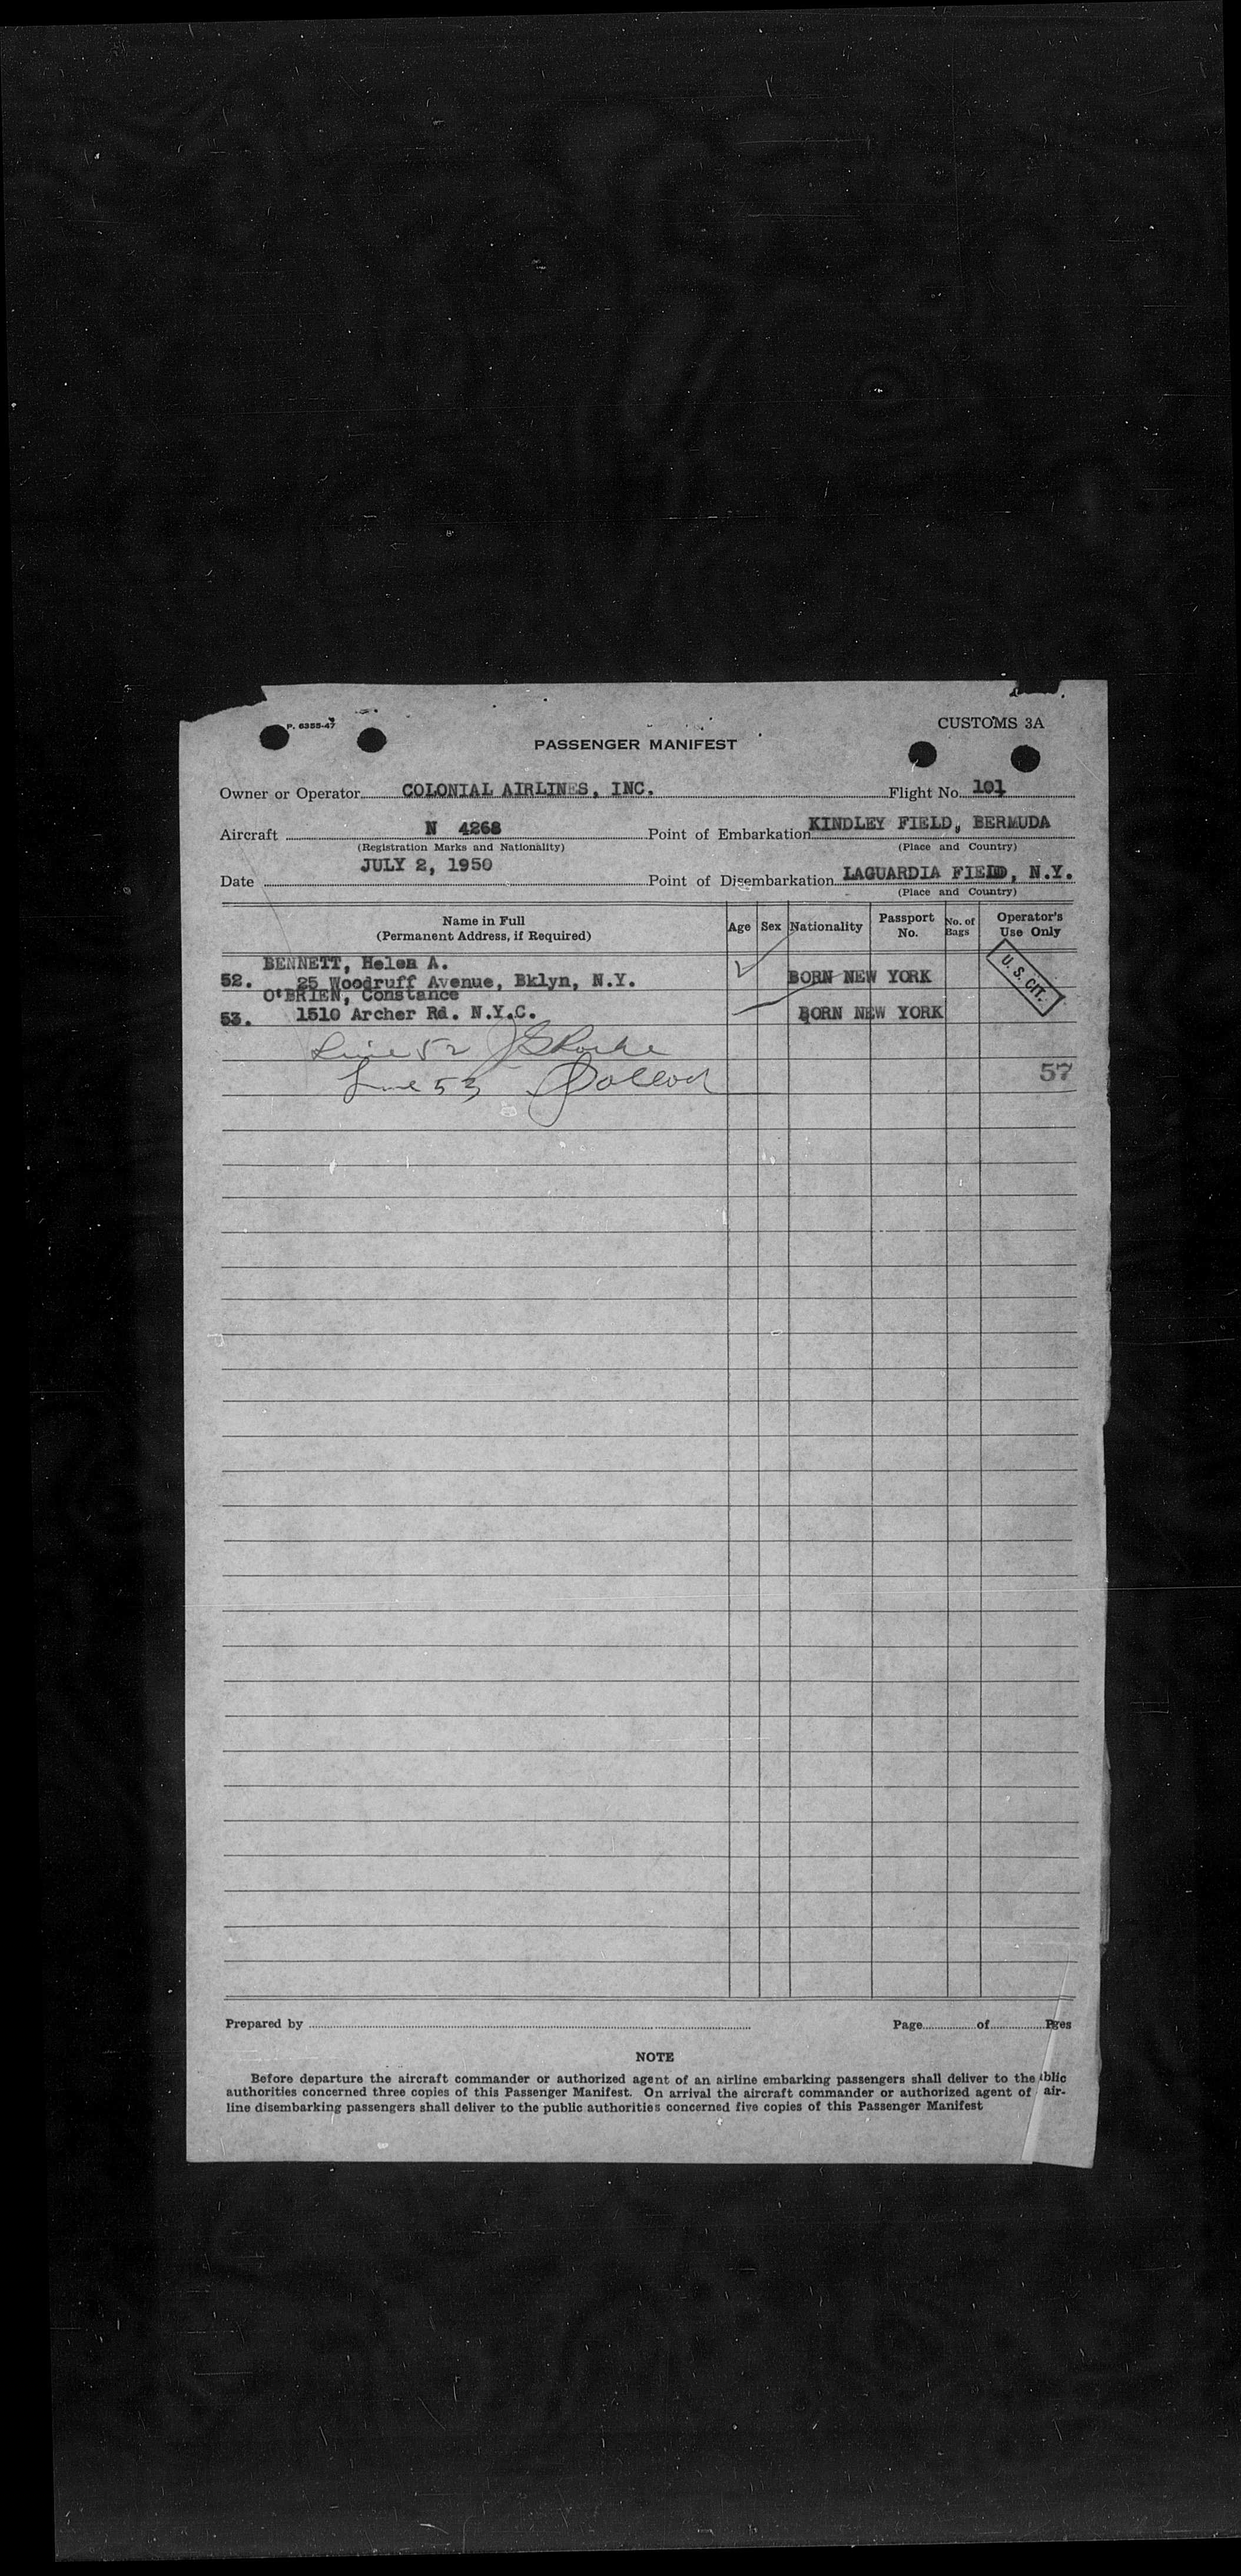 P. 6355-47
CUSTOMS 3A
PASSENGER MANIFEST
Owner or Operator COLONIAL AIRLINES, INC. Flight No. 101
Aircraft N 4268 Point of Embarkation KINDLEY FIELD, BERMUDA
(Registration Marks and Nationality) (Place and Country)
Date JULY 2, 1950 Point of Disembarkation LAGUARDIA FIELD, N.Y.
(Place and Country)
Name in Full (Permanent Address, if Required) Age Sex Nationality Passport No. No. of Bags Operator's Use Only
BENNETT, Helen A.
52. 25 Woodruff Avenue, Bklyn, N.Y. BORN NEW YORK U. S. CIT.
O'BRIEN, Constance
53. 1510 Archer Rd. N.Y.C. BORN NEW YORK
Line 52
Line 53
57
Prepared by Page of Pges
NOTE
Before departure the aircraft commander or authorized agent of an airline embarking passengers shall deliver to the blic
authorities concerned three copies of this Passenger Manifest. On arrival the aircraft commander or authorized agent of air-
line disembarking passengers shall deliver to the public authorities concerned five copies of this Passenger Manifest